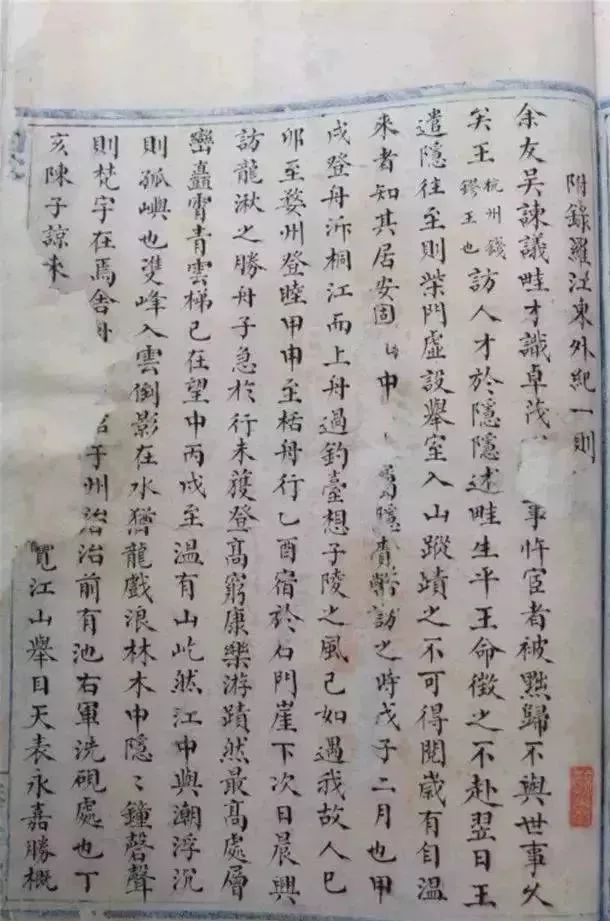 附錄羅江東外紀一則
余友吳諫議畦才識卓茂 事忤宦者被黜歸不與世事久
矣王杭州錢鏐王也訪人才於隱隱述畦生平王命徵之不赴翌日王
遣隱往至則柴門虛設舉室入山蹤蹟之不可得閱歲有自溫
來者知其居安固 申 隱賫幣訪之時戊子二月也甲
戌登舟泝桐江而上舟過釣臺想子陵之風已如遇我故人巳
卯至婺州登睦甲申至栝舟行乙酉宿於石門崖下次日晨興
訪龍湫之勝舟子急於行未獲登高窮康樂游蹟然最高處層
巒矗霄青雲梯已在望中丙戌至溫有山屹然江中與潮浮沉
則孤嶼也雙峰入雲倒影在水猶龍戲浪林木中隱〻鐘磬聲
則梵宇在焉舍舟 于州治治前有池右軍洗硯處也丁
亥陳子諒來 覽江山舉目天表永嘉勝概